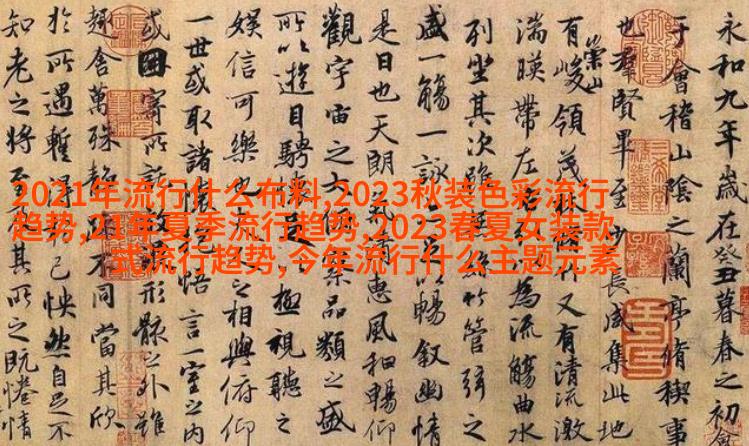 2021年流行什么布料,2023秋装色彩流行
趋势,21年夏季流行趋势,2023春夏女装款
式流行趋势,今年流行什么主题元素
永和九年歲在癸丑暮春之初會
于會稽山陰之蘭亭脩稧事
也群賢畢至少長咸集此地
有崇山峻領茂林脩竹又有清流激
湍暎帶左右引以為流觴曲水
列坐其次雖無絲竹管弦之
盛一觴一詠亦足以暢叙幽情
是日也天朗氣清惠風和暢仰
觀宇宙之大俯察品類之盛
所以遊目騁懷足以極視聽之
娛信可樂也夫人之相與俯仰
一世或取諸懷抱悟言一室之內
或因寄所託放浪形骸之外雖
趣舍萬殊靜躁不同當其欣
於所遇蹔得於己怏然自足不
知老之將至及其所之既惓情